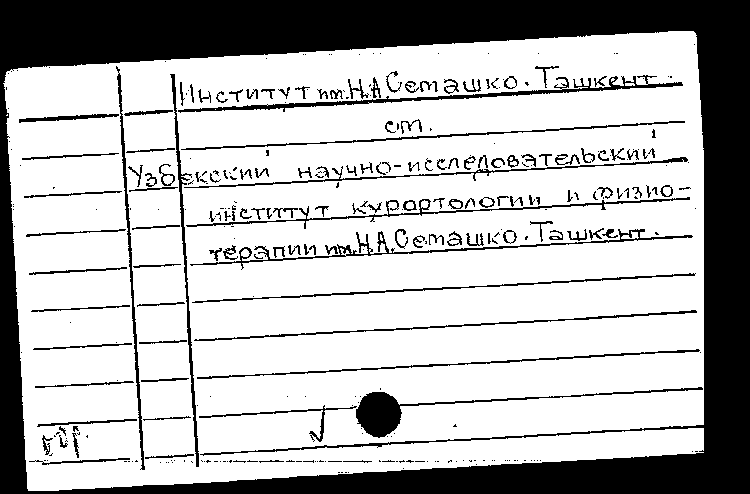 Институт им.Н.А.Семашко. Ташкент.
см.
Узбекский научно-исследовательский
институт курортологии и физио-
терапии им.Н.А.Семашко. Ташкент.